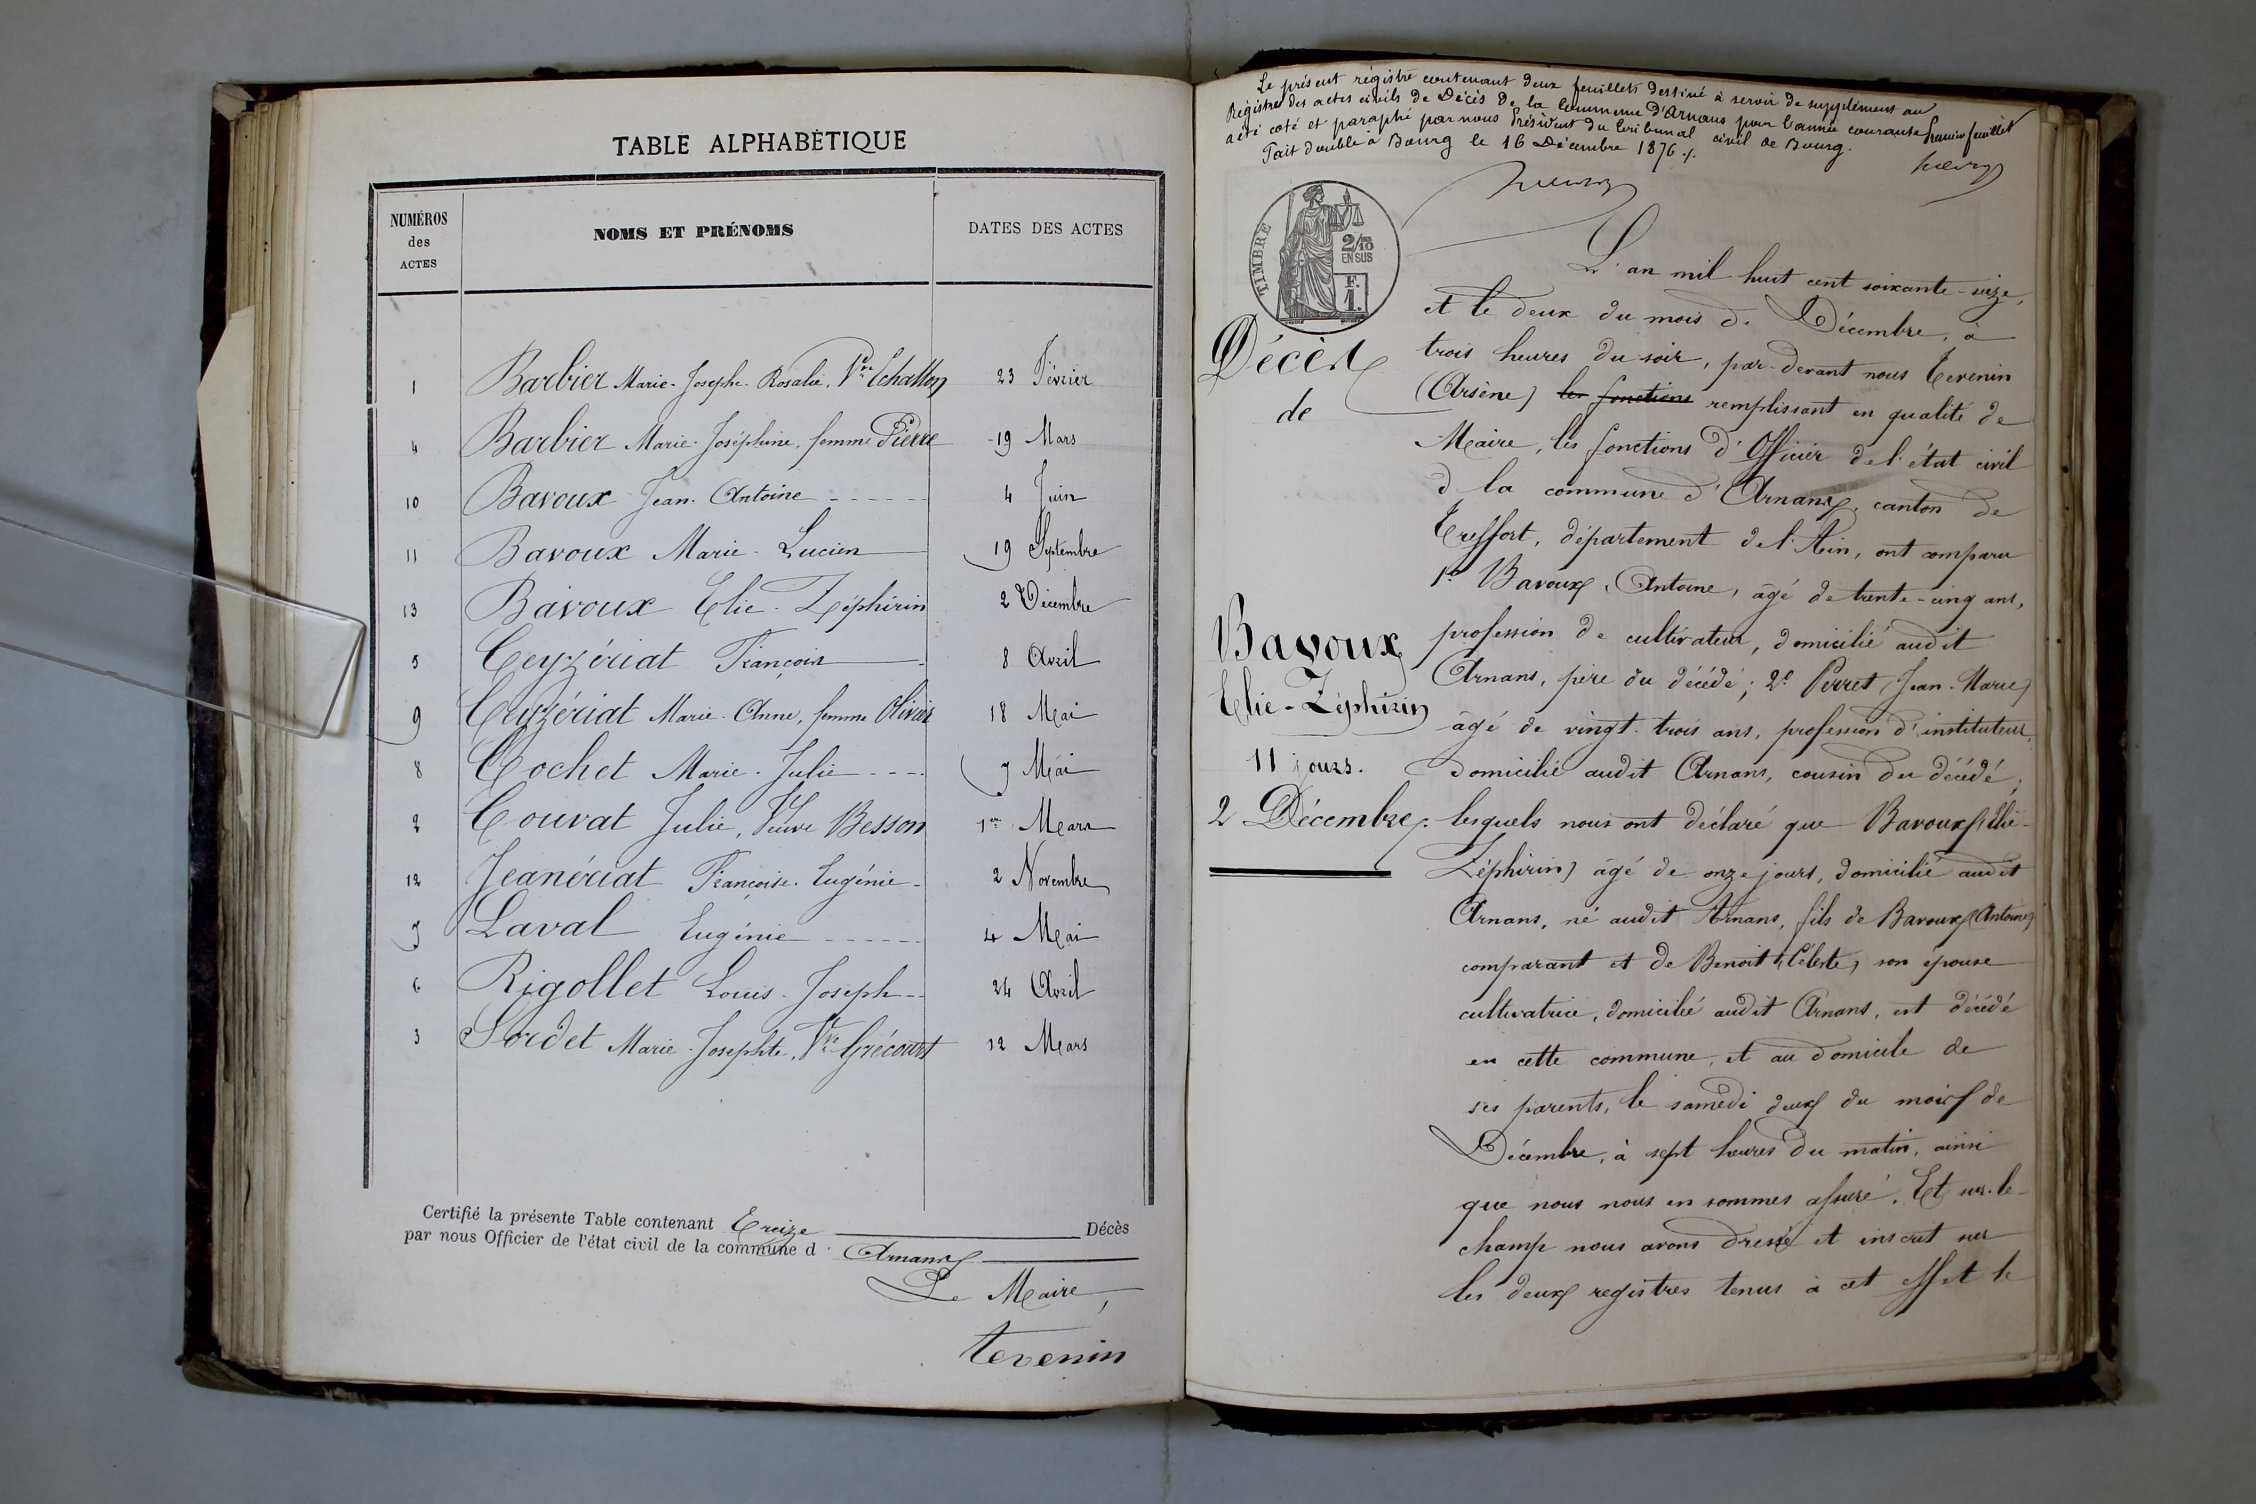 TABLE ALPHABÉTIQUE
NUMÉROS des ACTES
NOMS ET PRÉNOMS
DATES DES ACTES
1 Barbier Marie-Josephe-Rosalie, Vve Echallon 23 Février
4 Barbier Marie-Joséphine, femme Pierre 19 Mars
10 Bavoux Jean-Antoine 4 Juin
11 Bavoux Marie-Lucien 19 Septembre
13 Bavoux Elie-Zéphirin 2 Décembre
5 Ceyzériat François 8 Avril
9 Ceyzériat Marie-Anne, femme Olivier 18 Mai
8 Cochet Marie-Julie 7 Mai
2 Couvat Julie, Veuve Besson 1er Mars
12 Jeanériat Françoise-Eugénie 2 Novembre
7 Laval Eugénie 4 Mai
6 Rigollet Louis-Joseph 24 Avril
3 Sordet Marie-Josephte, Vve Grécourt 12 Mars
Certifié la présente Table contenant Treize Décès
par nous Officier de l'état civil de la commune d'Arnans
Le Maire,
Tevenin
Le présent régistre contenant deux feuillets destiné à servir de supplément au
Régistre des actes civils de Décès de la Commune d'Arnans pour l'année courante
a été coté et paraphé par nous Président du tribunal civil de Bourg.
Fait double à Bourg le 16 Décembre 1876 /.
Premier feuillet
TIMBRE
2/10
EN SUS
F.
1.
Décès
de
Bavoux
Elie-Zéphirin
11 jours.
2 Décembre.
L'an mil huit cent soixante-seize,
et le deux du mois de Décembre, à
trois heures du soir, par-devant nous Tevenin
(Arsène) les fonctions remplissant en qualité de
Maire, les fonctions d'Officier de l'état civil
d la commune d'Arnans, canton de
Treffort, département de l'Ain, ont comparu
1° Bavoux, Antoine, âgé de trente-cinq ans,
profession de cultivateur, domicilié audit
Arnans, père du décédé; 2° Perret (Jean-Marie)
âgé de vingt-trois ans, profession d'instituteur,
domicilié audit Arnans, cousin du décédé;
lesquels nous ont déclaré que Bavoux (Elie-
Zéphirin) âgé de onze jours, domicilié audit
Arnans, né audit Arnans, fils de Bavoux (Antoine)
comparant et de Benoit (Céleste) son épouse
cultivatrice, domicilié audit Arnans, est décédé
en cette commune, et au domicile de
ses parents, le samedi deux du mois de
Décembre, à sept heures du matin, ainsi
que nous nous en sommes assuré. Et sur-le-
champ nous avons dressé et inscrit sur
les deux registres tenus à cet effet le